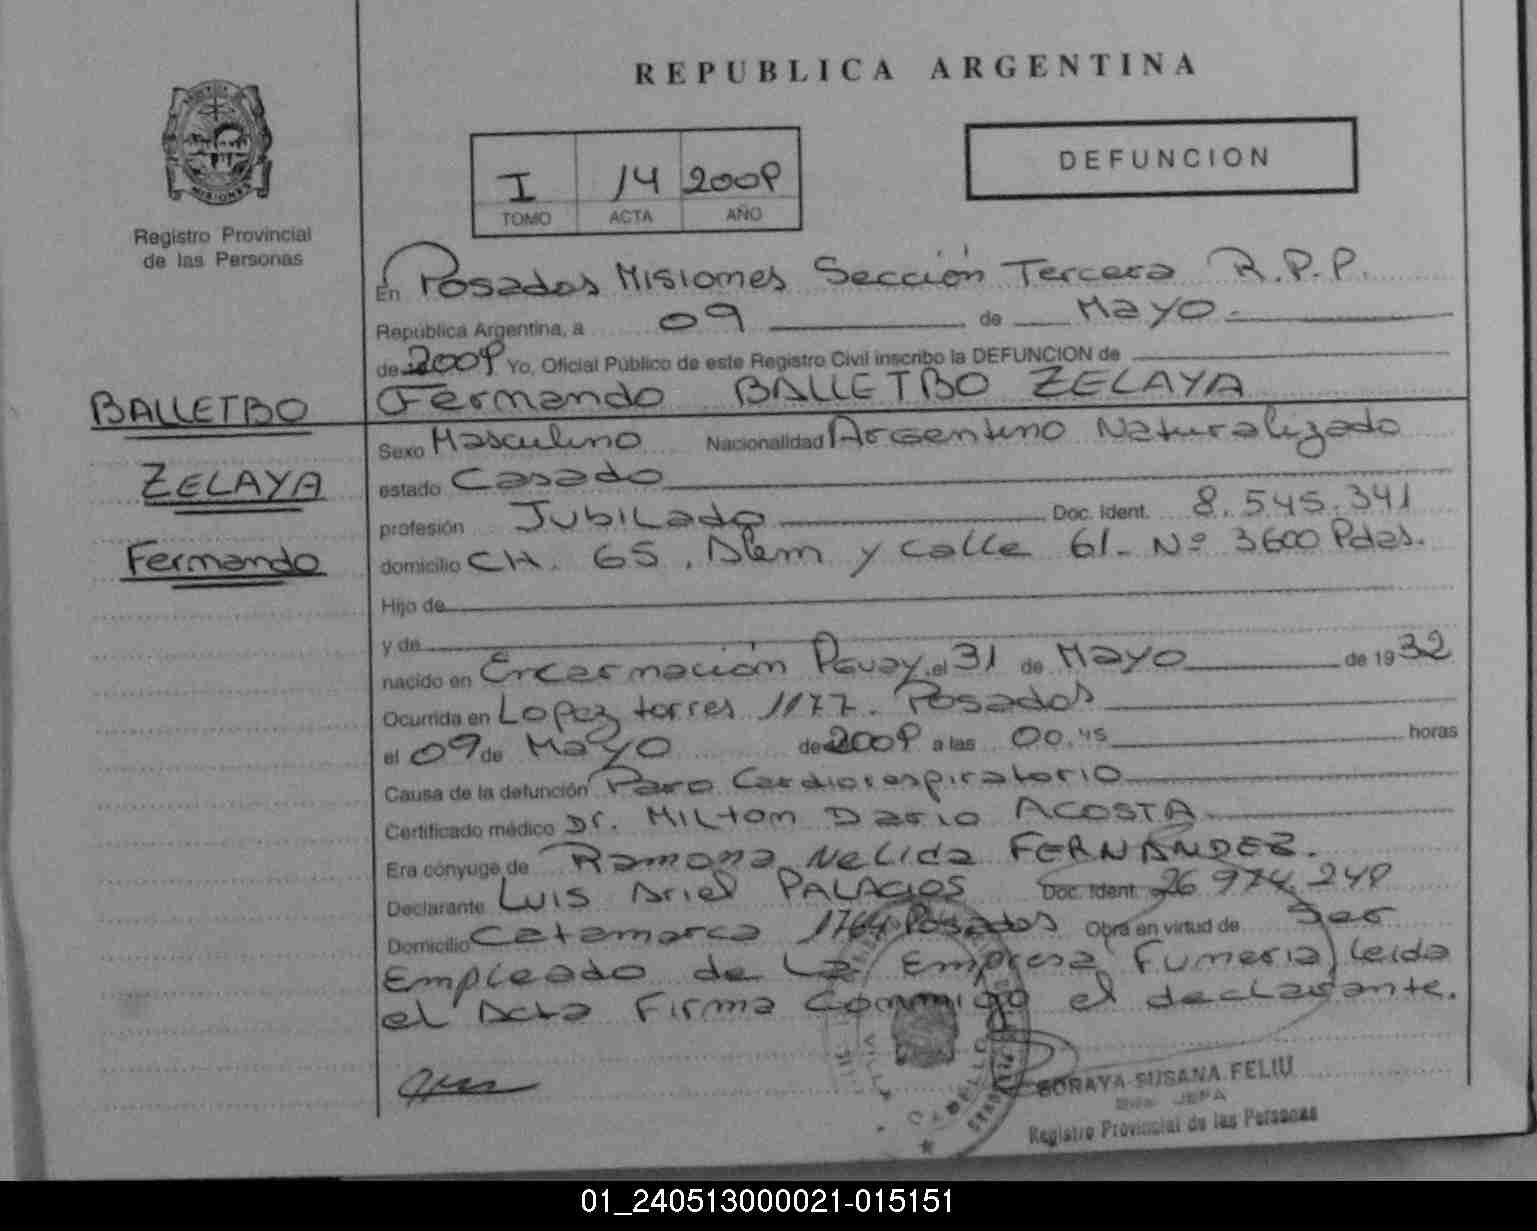 REPUBLICA ARGENTINA
MISIONES
Registro Provincial
de las Personas
I 14 2009
TOMO ACTA AÑO
DEFUNCION
En Posadas Misiones Sección Tercera R.P.P.
República Argentina, a 09 de Mayo
de 2009 Yo, Oficial Público de este Registro Civil inscribo la DEFUNCION de
Fernando BALLETBO ZELAYA
BALLETBO
ZELAYA
Fernando
Sexo Masculino Nacionalidad Argentino Naturalizado
estado Casado
profesión Jubilado Doc. Ident. 8.545.341
domicilio CH. 65, Alem y calle 61- Nº 3600 Pdas.
Hijo de
y de
nacido en Encarnación Pguay, el 31 de Mayo de 1932
Ocurrida en Lopez torres 1177. Posadas
el 09 de Mayo de 2009 a las 00.45 horas
Causa de la defunción Paro Cardiorespiratorio
Certificado médico Dr. Milton Dario ACOSTA
Era cónyuge de Ramona Nelida FERNANDEZ.
Declarante Luis Ariel PALACIOS Doc. Ident. 26.974.249
Domicilio Catamarca 1764 Posadas Obra en virtud de Ser
Empleado de La Empresa Funeria, leida
el Acta Firma Conmigo el declarante.
SORAYA SUSANA FELIU
JEFA
Registro Provincial de las Personas
01_240513000021-015151